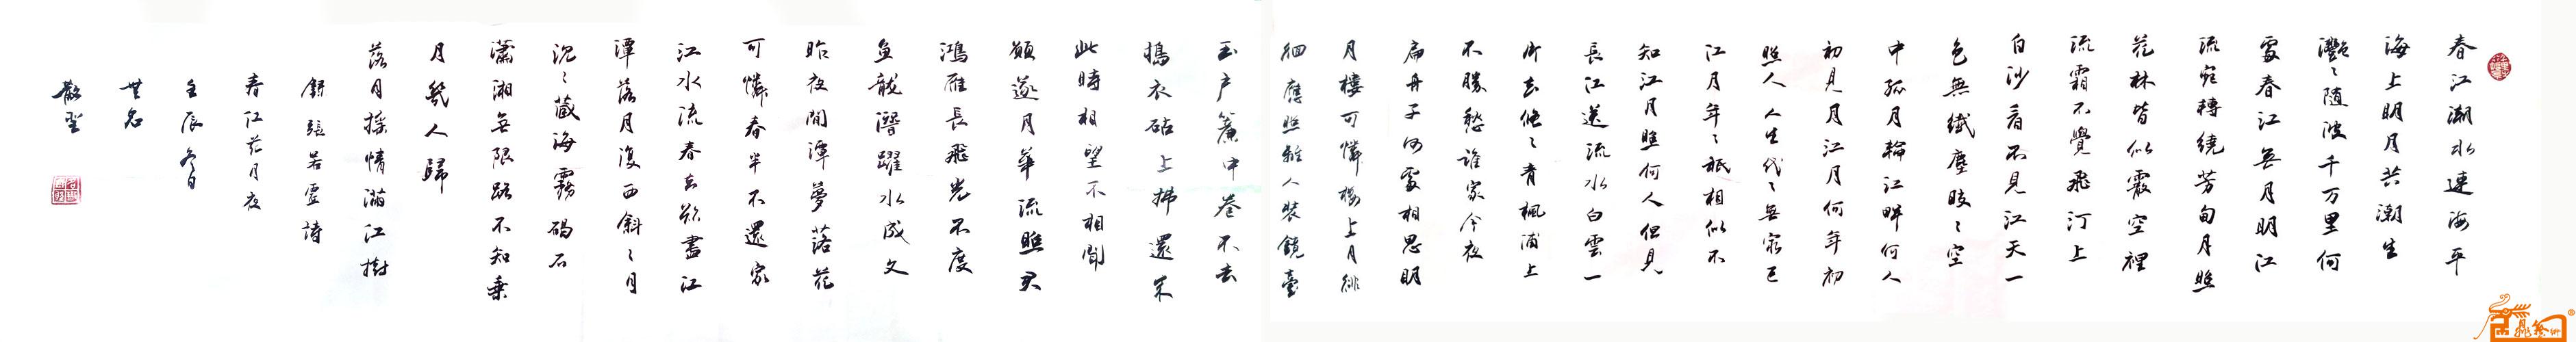 春江潮水連海平
海上明月共潮生
灩〻随波千万里何
處春江無月明江
流宛轉繞芳甸月照
花林皆似霰空裡
流霜不覺飛汀上
白沙看不見江天一
色無纖塵皎〻空
中孤月輪江畔何人
初見月江月何年初
照人人生代〻無窮已
江月年〻祇相似不
知江月照何人但見
長江送流水白雲一
片去悠〻青楓浦上
不勝愁誰家今夜
扁舟子何處相思明
月樓可憐樓上月徘
徊應照離人妝鏡臺
玉户簾中卷不去
搗衣砧上拂還来
此時相望不相聞
願逐月華流照君
鴻雁長飛光不度
魚龍潛躍水成文
昨夜閒潭夢落花
可憐春半不還家
江水流春去欲盡江
潭落月復西斜〻月
沉〻藏海霧碣石
瀟湘無限路不知乗
月幾人歸
落月揺情滿江樹
録張若虚詩
春江花月夜
壬辰冬日